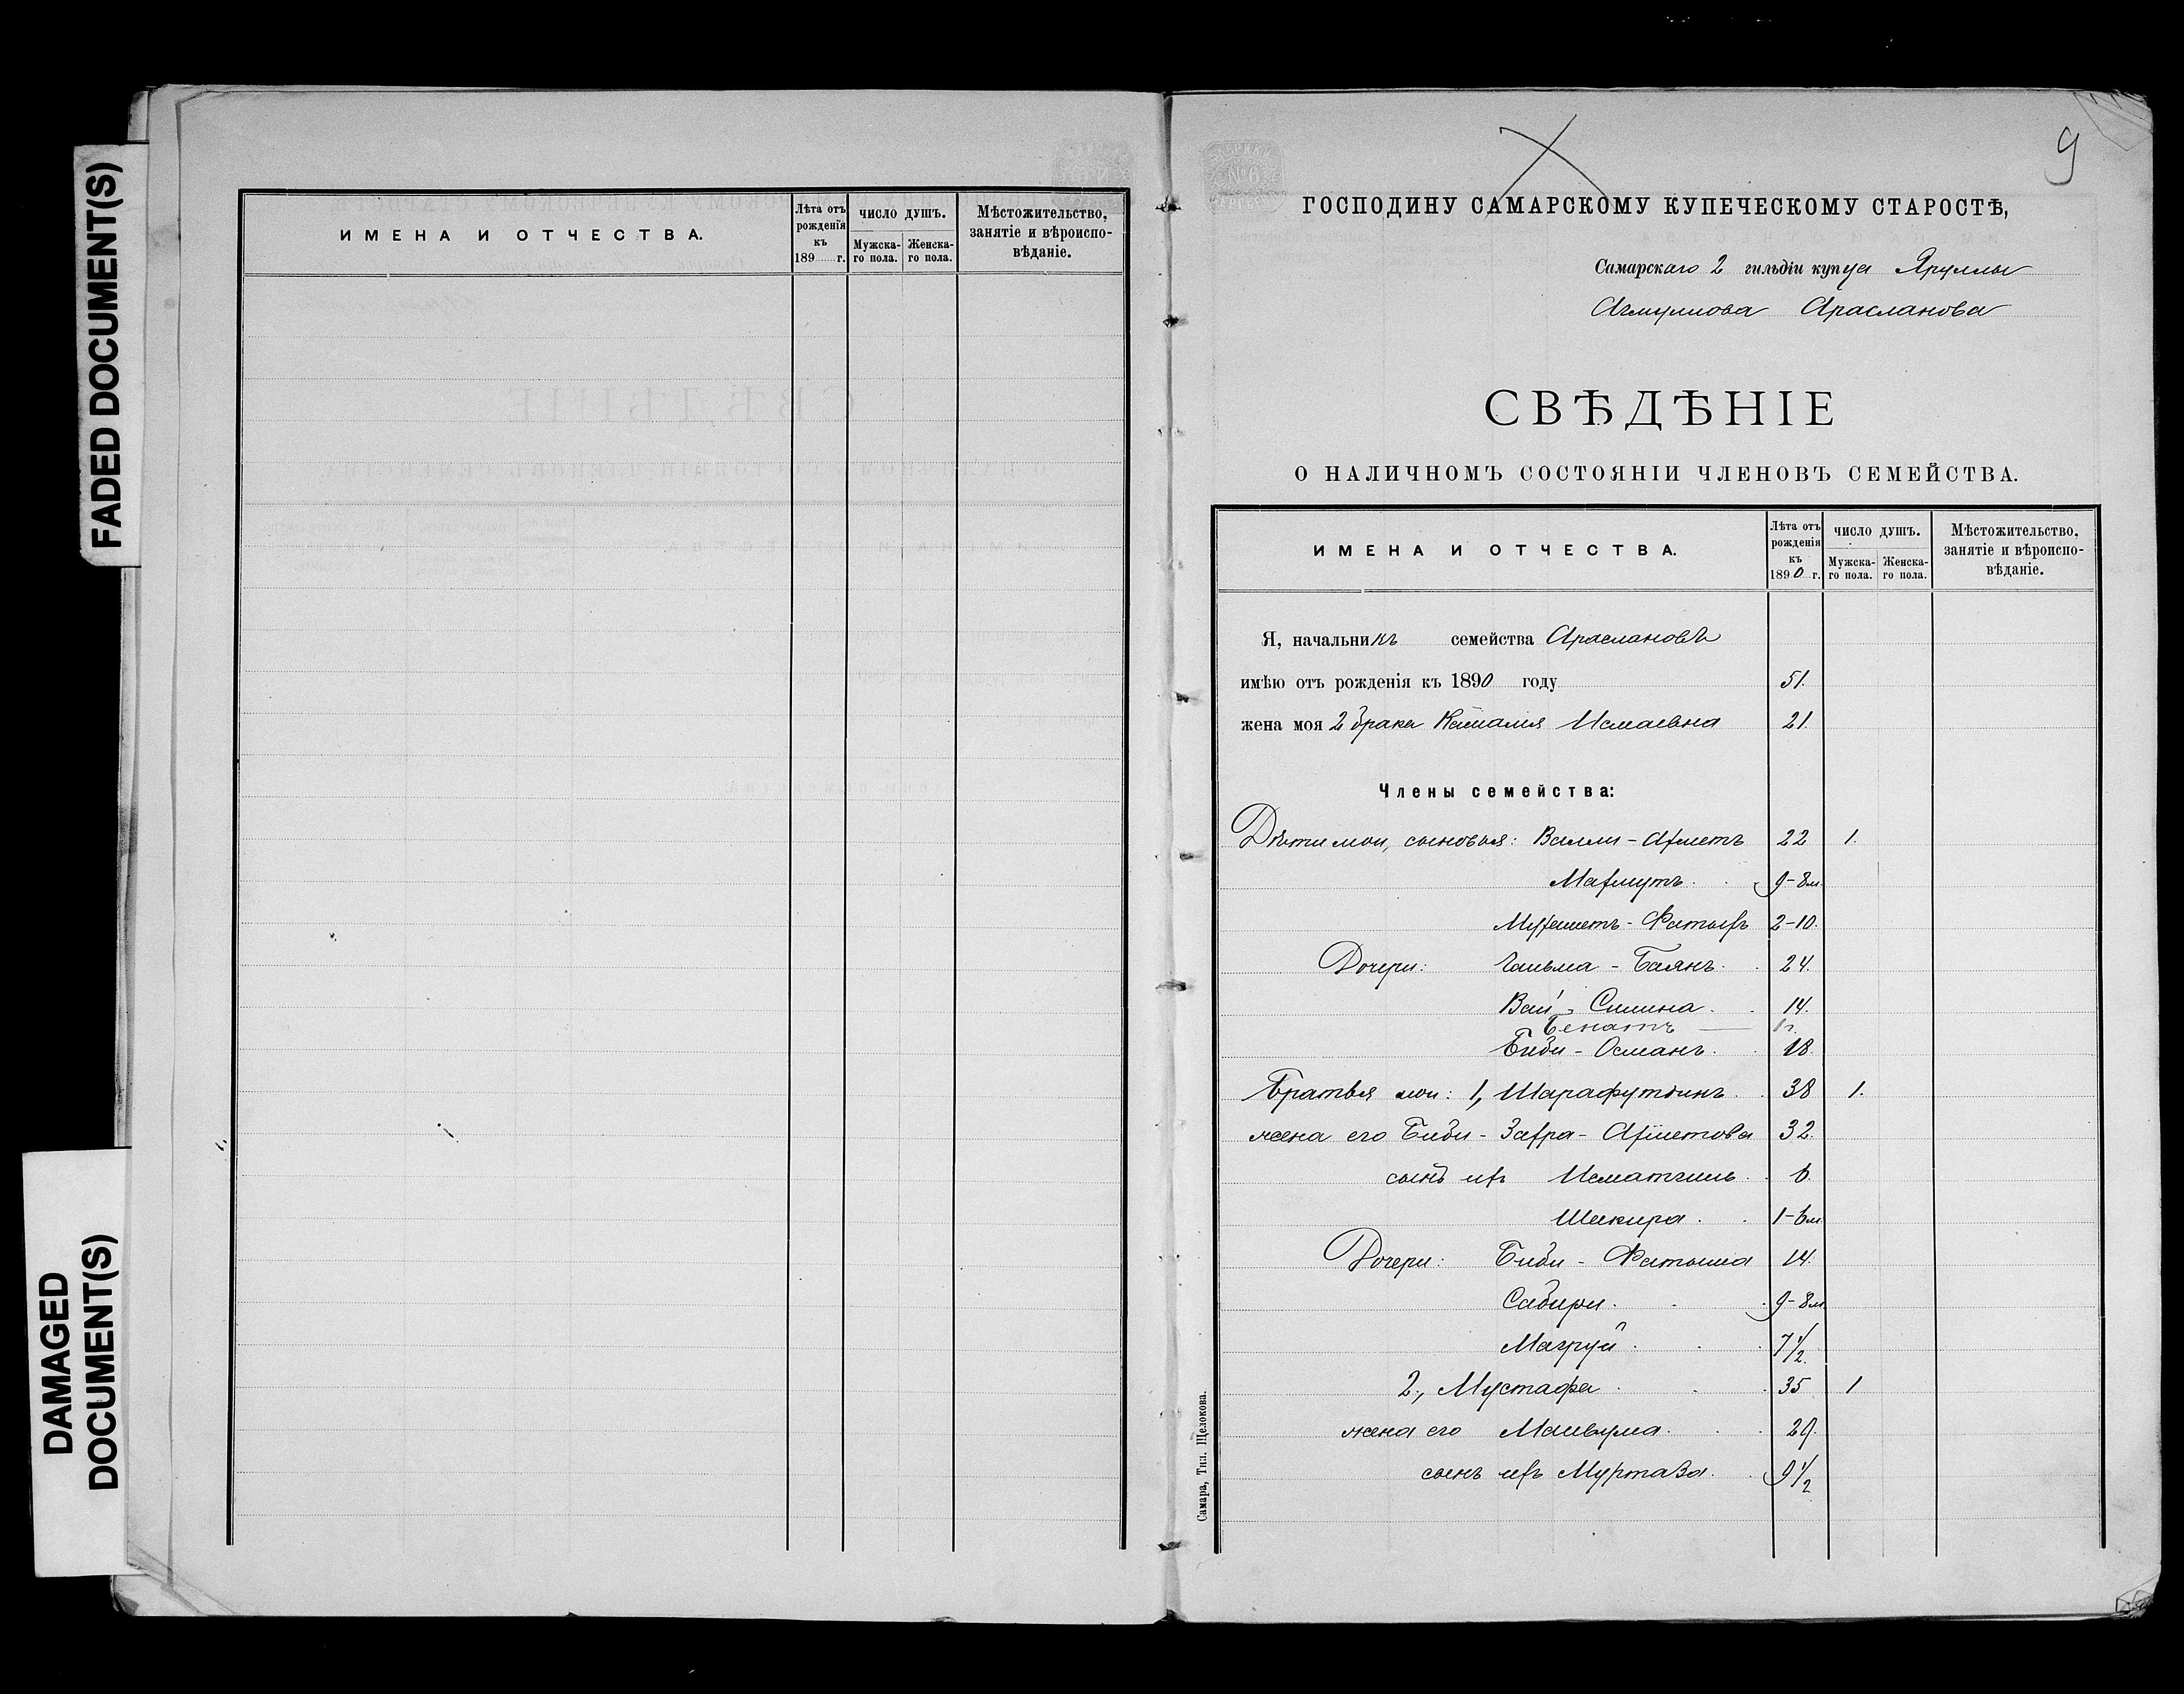 FADED DOCUMENT(S)
DAMAGED
DOCUMENT(S)
ИМЕНА И ОТЧЕСТВА.
Лѣта отъ рожденія къ 189 г.
ЧИСЛО ДУШЪ.
Мужска-го пола.
Женска-го пола.
Мѣстожительство, занятіе и вѣроиспо-вѣданіе.
9
ГОСПОДИНУ САМАРСКОМУ КУПЕЧЕСКОМУ СТАРОСТѢ,
Самарскаго 2 гильдіи купца Яруллы
Арасланова
СВѢДѢНІЕ
О НАЛИЧНОМЪ СОСТОЯНІИ ЧЛЕНОВЪ СЕМЕЙСТВА.
ИМЕНА И ОТЧЕСТВА.
Лѣта отъ рожденія къ 1890 г.
ЧИСЛО ДУШЪ.
Мужска-го пола.
Женска-го пола.
Мѣстожительство, занятіе и вѣроиспо-вѣданіе.
Я, начальникъ семейства Араслановъ
имѣю отъ рожденія къ 1890 году 51.
жена моя 2 брака Камалия Исмаевна 21.
Члены семейства:
Дѣти мои, сыновья: Валли-Ахметъ 22 1.
Махмутъ. 9-8м.
Мухаметъ-Фатыхъ 2-10.
Дочери: Баянъ. 24.
14.
Бенатъ — 1 г.
Биби-Османъ. 18.
Братья мои: 1, Шарафутдинъ. 38 1.
жена его Биби-Захра-Ахметова 32.
сынъ ихъ 6.
Шакира. 1-6м
Дочери: Биби-Фатыма 14.
Сабири. 9-8м
Магруй. 7 1/2.
2., Мустафа 35 1
жена его 29.
сынъ ихъ Муртаза. 9 1/2
Самара, Тип. Щелокова.